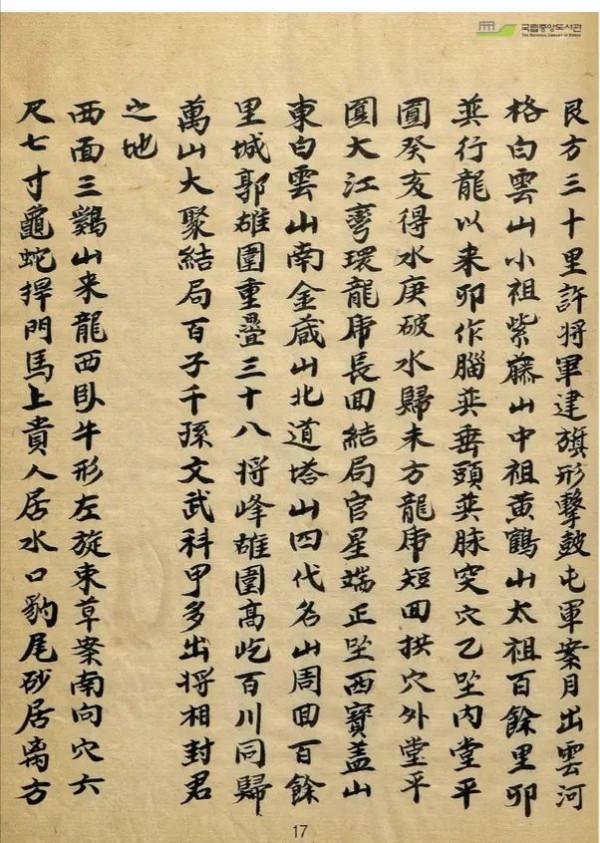 국립중앙도서관
THE NATIONAL LIBRARY OF KOREA
艮方三十里許将軍建旗形擊鼓屯軍案月出雲河
格白雲山小祖紫藤山中祖黃鶴山太祖百餘里卯
巽行龍以来卯作腦巽垂頭巽脉突穴乙坐內堂平
圓癸亥得水庚破水歸未方龍虎短回拱穴外堂平
圓大江弯環龍虎長回結局官星端正坐西寶盖山
東白雲山南金藏山北道塔山四代名山周回百餘
里城郭雄圍重疊三十八将峰雄圍高屹百川同歸
萬山大聚結局百子千孫文武科甲多出将相封君
之地
西面三鷄山来龍西臥牛形左旋束草案南向穴六
尺七寸龜蛇捍門馬上貴人居水口豹尾砂居离方
17